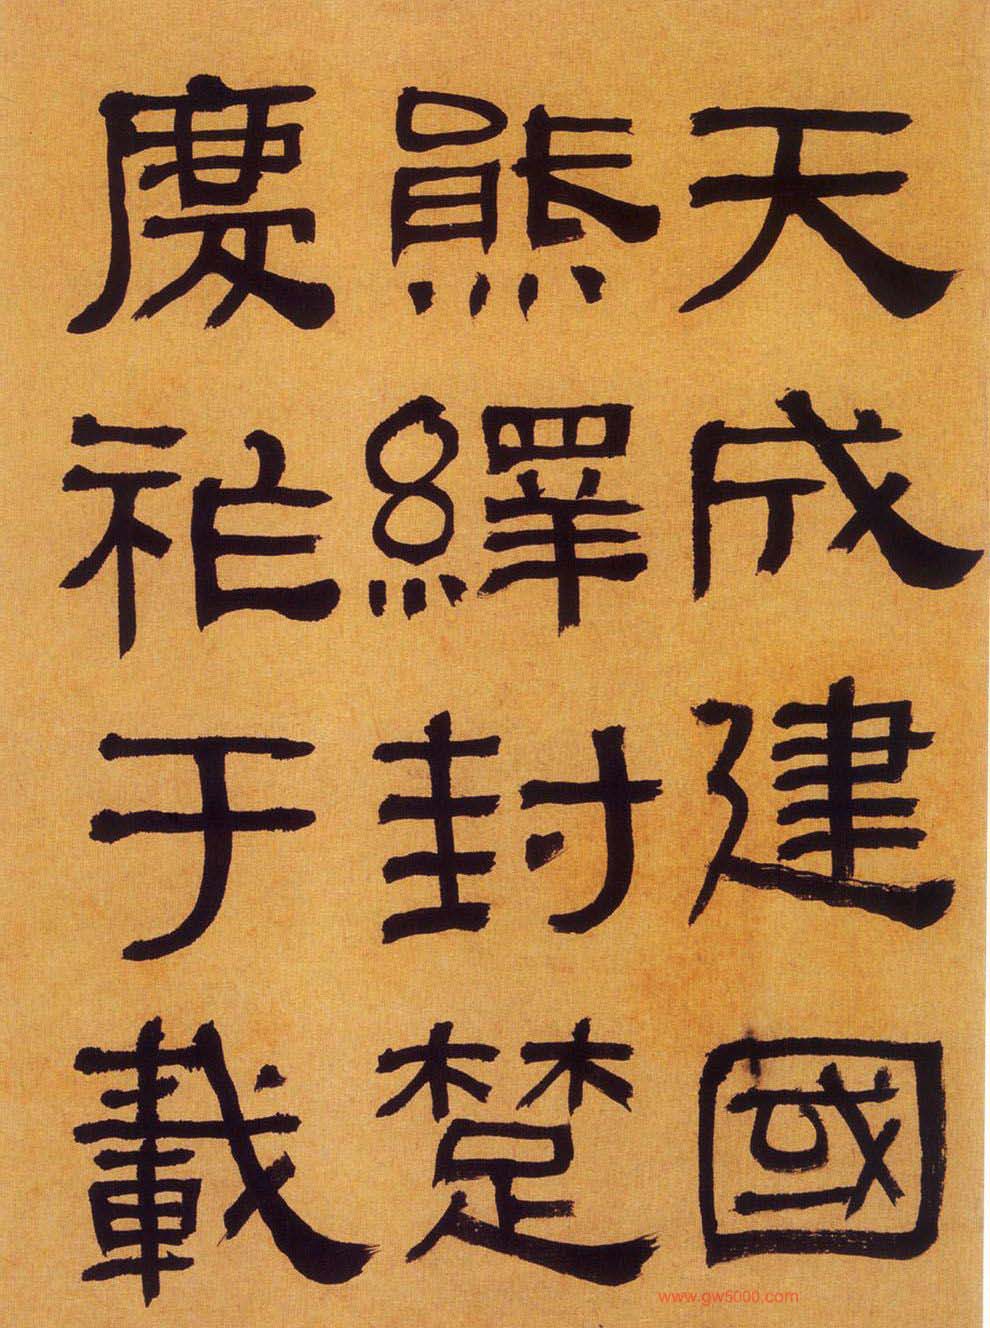 天成建國
熊繹封楚
慶祚于載
www.gw5000.com